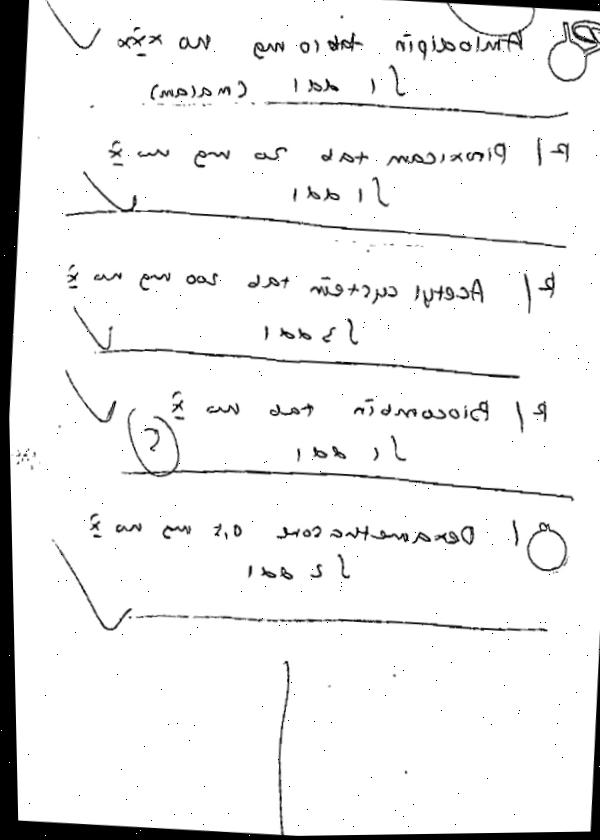 Amlodipin tab 10 mg no xxx
ʃ 1 dd 1 (malam)
R/ Piroxicam tab 20 mg no x
ʃ 1 dd 1
R/ Acetyl cystein tab 200 mg no x
ʃ 3 dd 1
R/ Biocombin tab no x
ʃ 1 dd 1
/ Dexamethasone 0,5 mg no x
ʃ 2 dd 1